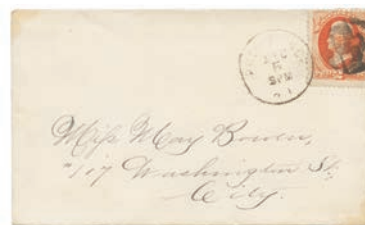 DEC
5
5 PM
Miss May Bowen,
"117 Washington St.,
City.